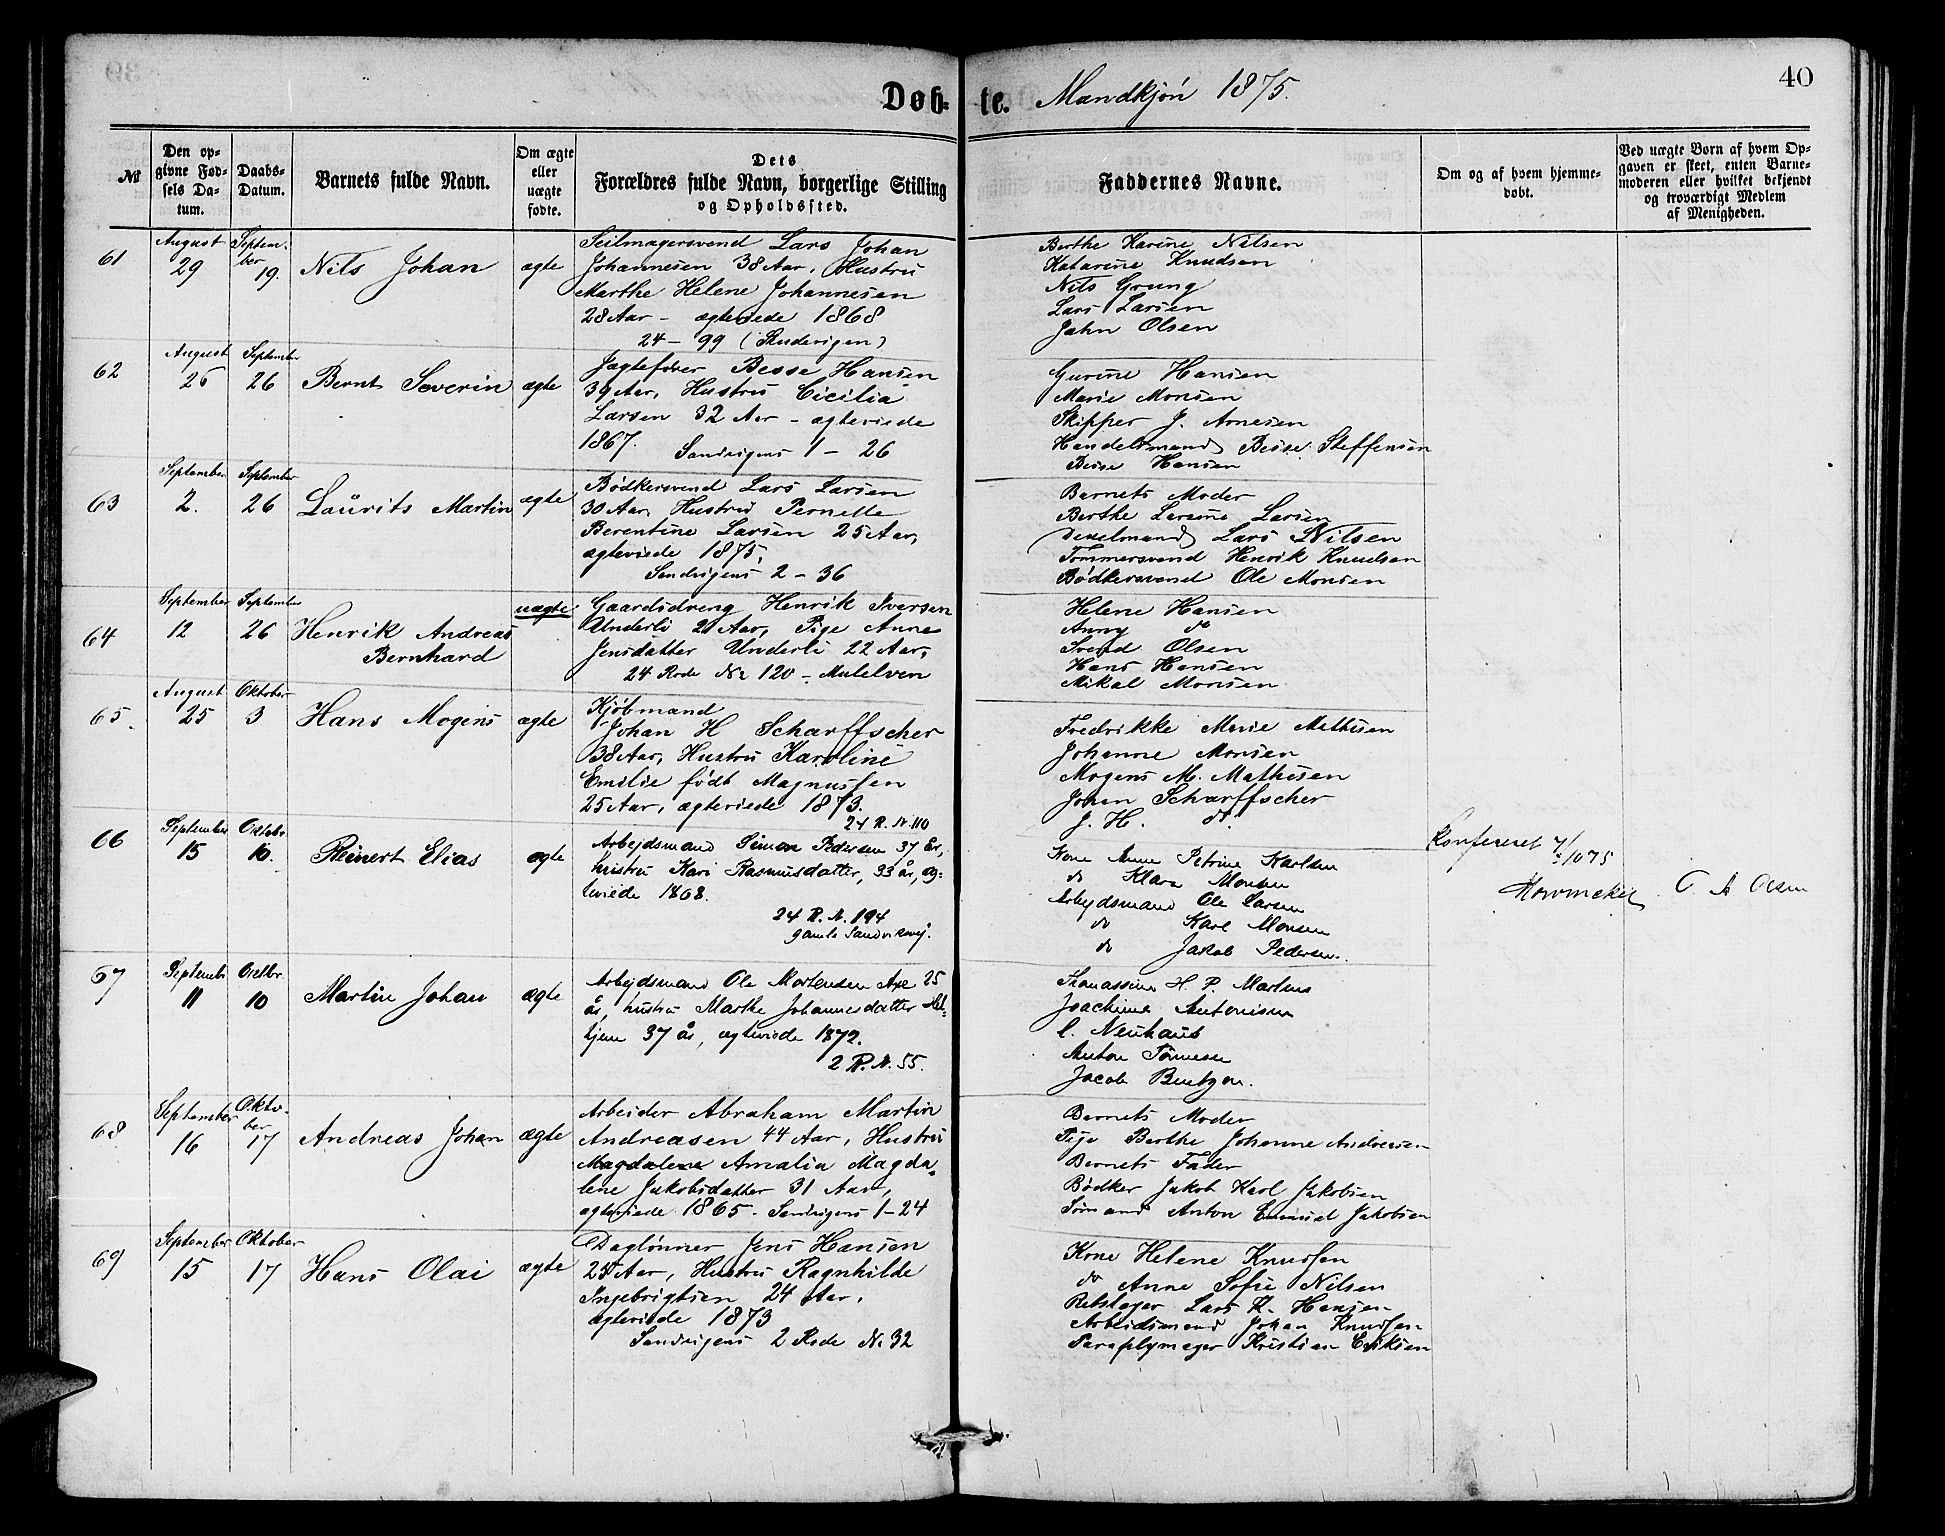 40
Døb- te. Mandkjøn 1875.
№
Den op-
givne Fød-
sels Da-
tum.
Daabs-
Datum.
Barnets fulde Navn.
Om ægte
eller
uægte
fødte.
Dets
Forældres fulde Navn, borgerlige Stilling
og Opholdssted.
Faddernes Navne.
Om og af hvem hjemme-
døbt.
Ved uægte Børn af hvem Op-
gaven er skeet, enten Barne-
moderen eller hvilket bekjendt
og troværdigt Medlem
af Menigheden.
61
August
29
Septem-
ber
19.
Nils Johan
ægte
Seilmagersvend Lars Johan
Johannesen 38 Aar, Hustru
Marthe Helene Johannesen
28 Aar - ægteviede 1868
24 - 99 (Skudevigen)
Berthe Karine Nilsen
Katarine Knudsen
Nils Grung
Lars Larsen
John Olsen
62
August
26
September
26
Bernt Severin
ægte
Jagtefører Besse Hansen
39 Aar, Hustru Cicilia
Larsen 32 Aar - ægteviede
1867.
Sandvigens 1 - 26
Gurine Hansen
Marie Monsen
Skipper J. Arnesen
Handelsmand Besse Steffensen
Besse Hansen
63
September
2.
September
26
Laurits Martin
ægte
Bødkersvend Lars Larsen
30 Aar, Hustru Pernelle
Berentine Larsen 25 Aar,
ægteviede 1875,
Sandvigens 2 - 36
Barnets Moder
Berthe Larsen
Lars Nilsen
Tømmersvend Henrik Knudsen
Bødkersvend Ole Monsen
64
September
12
September
26
Henrik Andreas
Bernhard
uægte
Gaardsdreng Henrik Iversen
Underli 21 Aar, Pige Anne
Jensdatter Underli 22 Aar,
24 Rode No 120 - Mulelven
Helene Hansen
Anny do
Svend Olsen
Hans Hansen
Mikal Monsen
65.
August
25
Oktober
3
Hans Mogens
ægte
Kjøbmand
Johan H Scharffscher
38 Aar, Hustru Karoline
Emilie født Magnussen
25 Aar, ægteviede 1873.
24 R. N. 110
Fredrikke Marie Mathisen
Johanne Monsen
Mogens M. Mathisen
Johan Scharffscher
J. H. do.
66
September
15
Oktober
10.
Reinert Elias
ægte
Arbejdsmand Simon Pedersen 37 år,
hustru Kari Rasmusdatter, 33 år, æg-
teviede 1868.
24 R. N. 194
gamle Sandviksvej.
Kone Anne Petrine Karlsen
do Klara Monsen
Arbejdsmand Ole Larsen
do Karl Monsen
do Jakob Pedersen.
Konfereret 7/10 75
67
September
11
Octbr.
10
Martin Johan
ægte
Arbejdsmand Ole Mortensen Axe 25
år, hustru Marthe Johannesdatter
37 år, ægteviede 1872.
2 R. N. 55.
H. P. Martens
Joachime Antonisen
C. Neuhaus
Anton Tønnesen
Jacob Bentzon.
68
September
16
Okto-
ber
17
Andreas Johan
ægte
Arbeider Abraham Martin
Andreasen 44 Aar, Hustru
Magdalene Amalia Magda-
lene Jakobsdatter 31 Aar,
ægteviede 1865 - Sandvigens 1-24
Barnets Moder
Pige Berthe Johanne Andresen
Barnets Fader
Bødker Jakob Karl Jakobsen
Sømand Anton Emanuel Jakobsen
69
September
15
Oktober
17
Hans Olai
ægte
Daglønner Jens Hansen
25 Aar, Hustru Ragnhilde
Ingebrigtsen 24 Aar,
ægteviede 1873
Sandvigens 2 Rode No 32
Kone Helene Knudsen
do Anne Sofie Nilsen
Rebslager Lars K. Hansen
Arbeidsmand Johan Knudsen
Paraplymager Kristian Eriksen